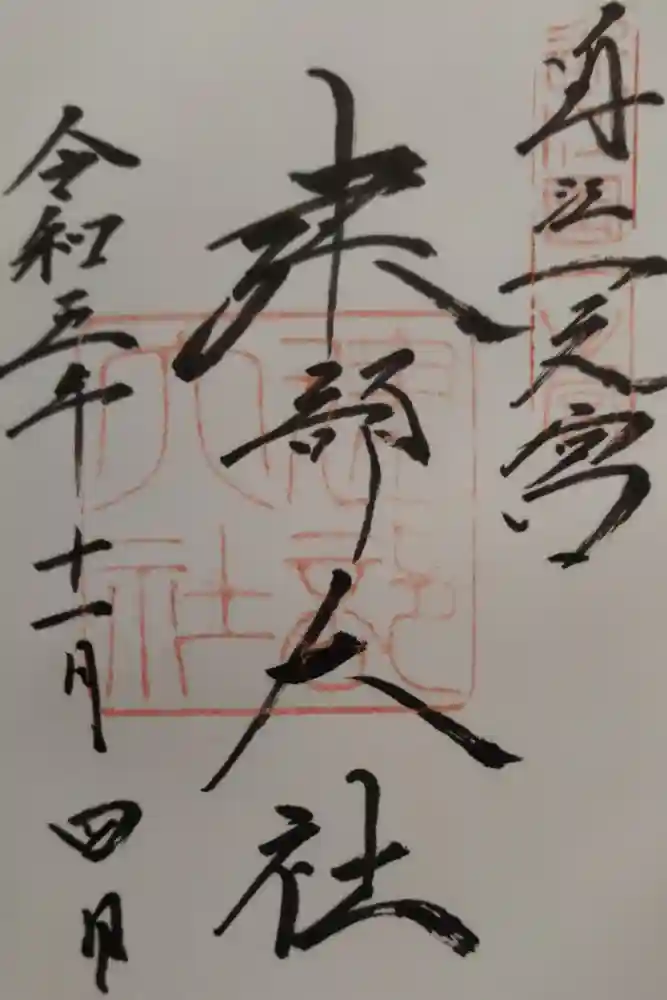 近江一之宮
建部大社
令和五年十一月四日
建部
大社